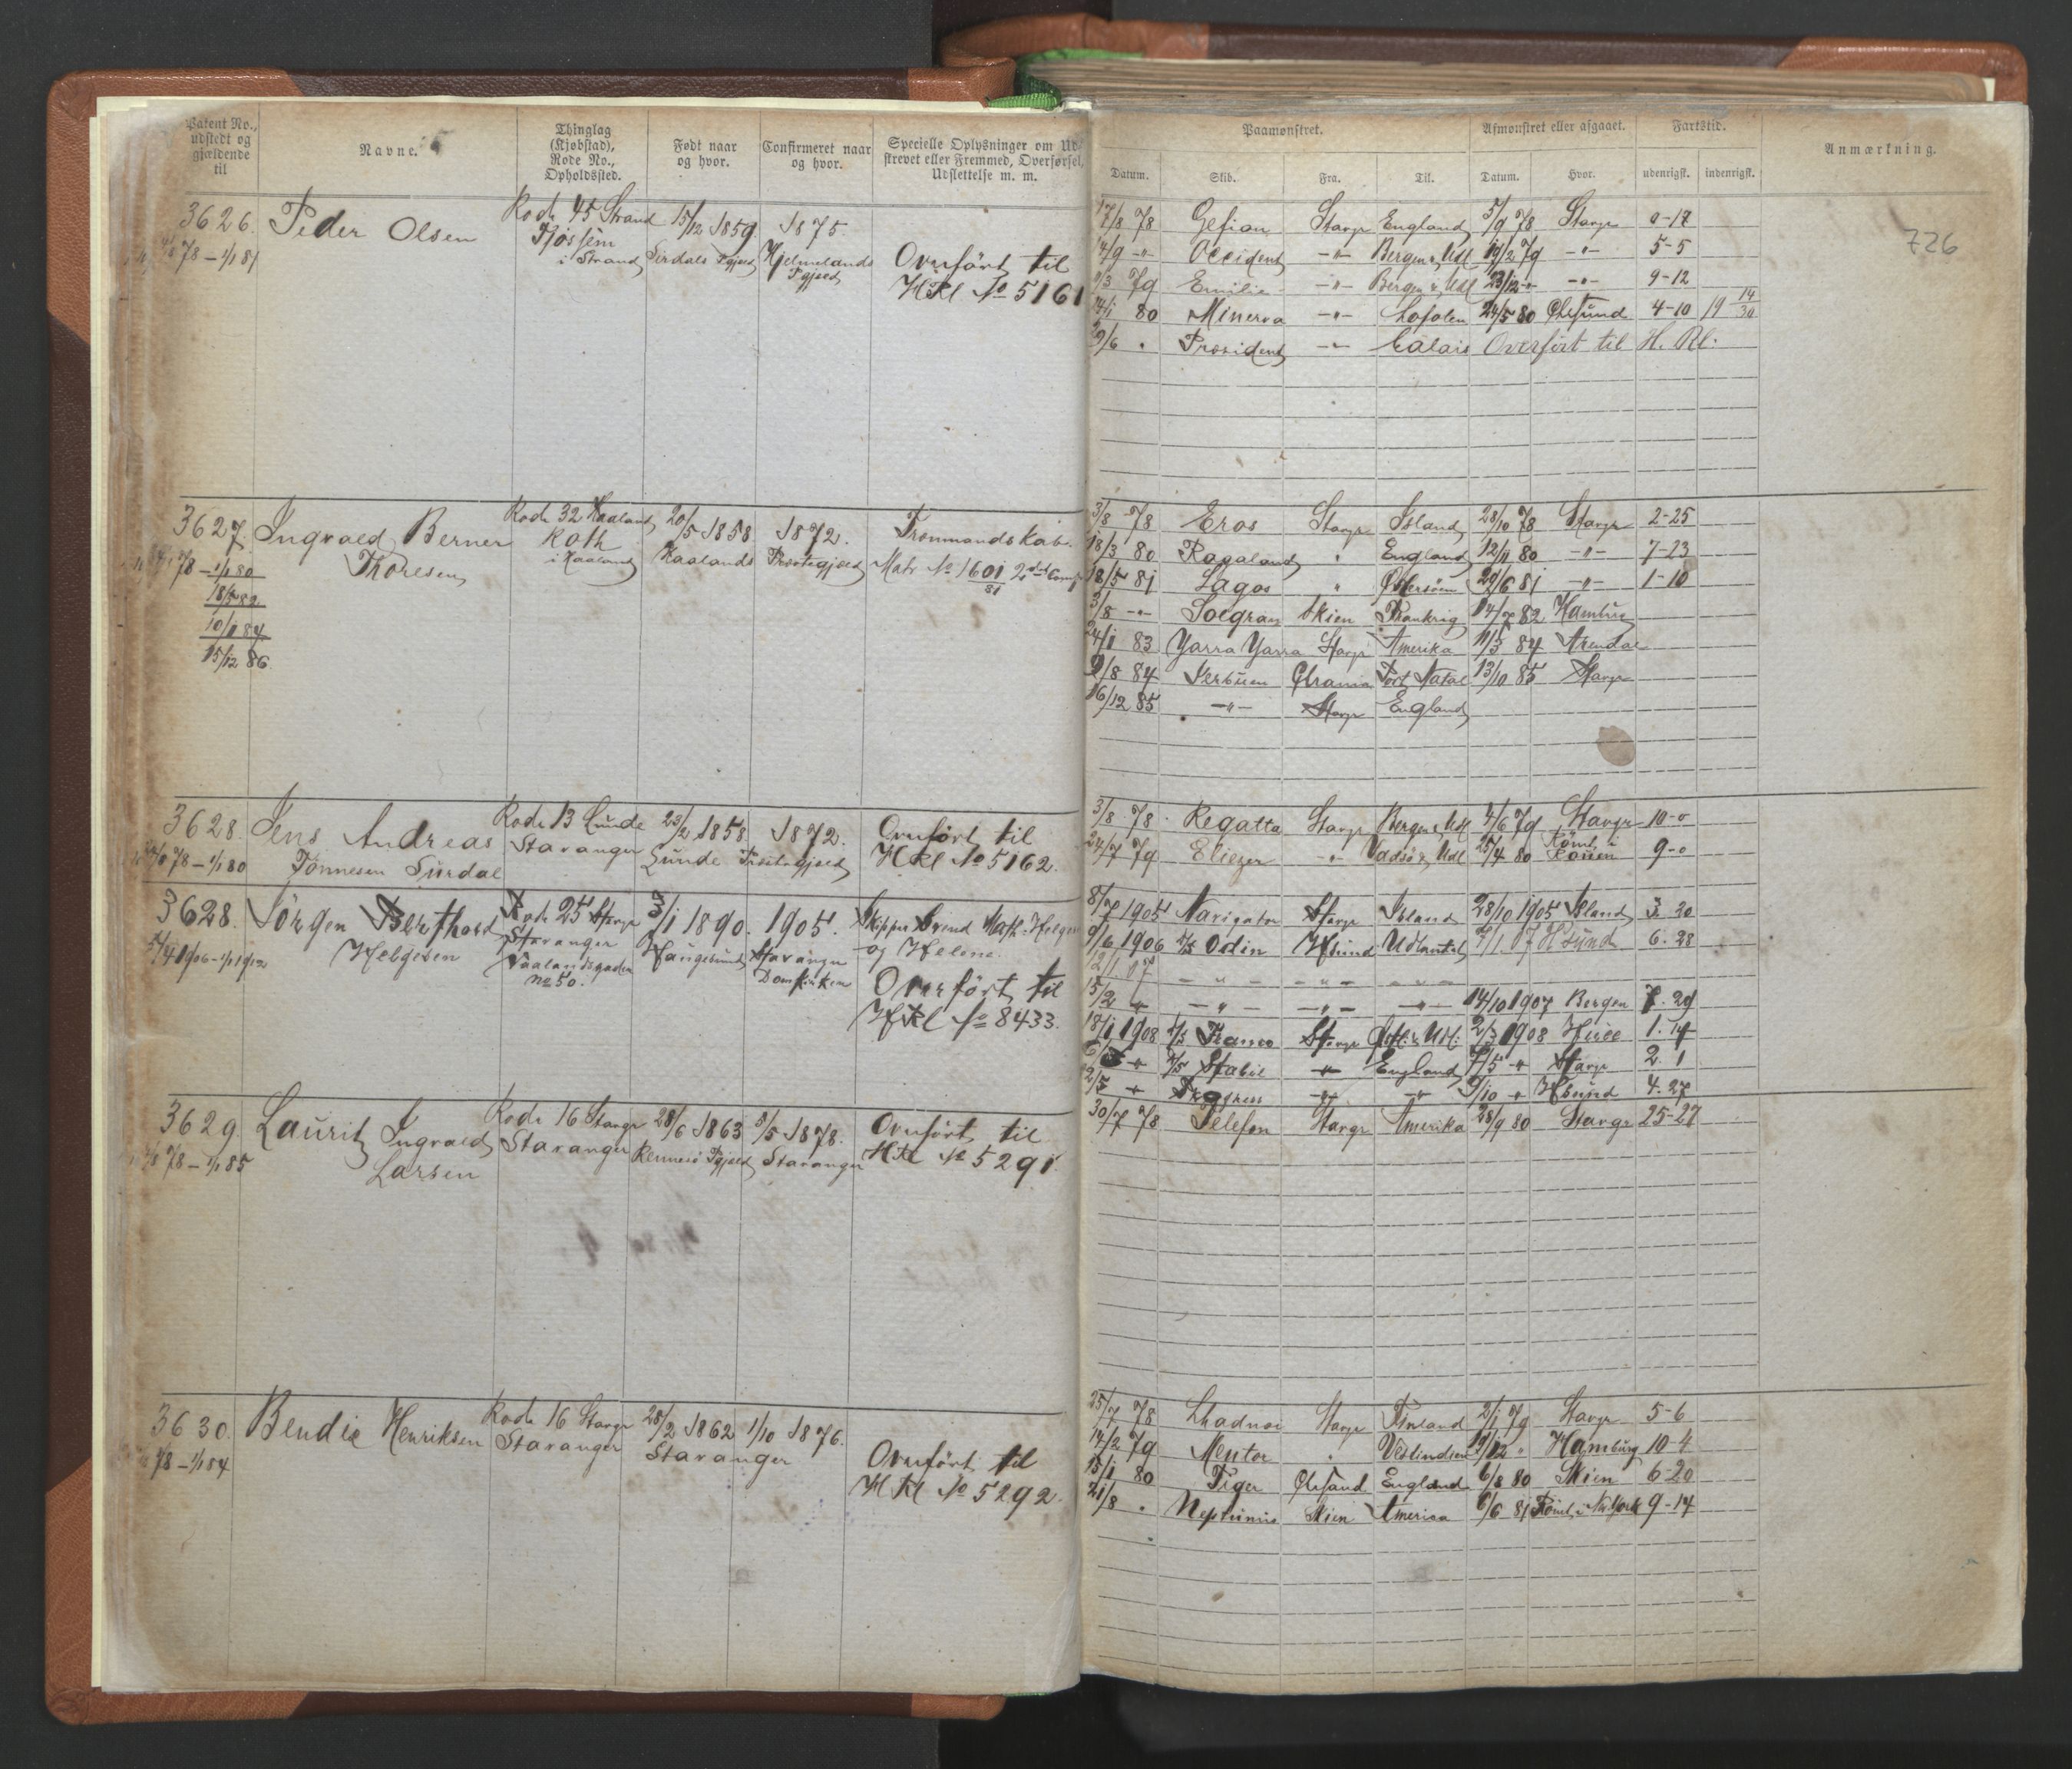 Patent No., udstedt og gjældende til
Navne.
Thinglag (Kjøbstad), Rode No., Opholdssted.
Født naar og hvor.
Confirmeret naar og hvor.
Specielle Oplysninger om Ud-
strevet eller Fremmed, Overførsel,
Udslettelse m. m.
Paamønstret.
Afmønstret eller afgaaet.
Fartstid.
Anmærkning.
Datum. Skib. Fra. Til. Datum. Hvor. udenrigsk. indenrigsk.
726
3626. Peder Olsen Rode 45 Strand 15/12 1859 1875.
78 - 1/1 81 i Strand Pgjeld Hjelmelands Pgjeld
Overført til
HRl No 5161
17/8 78 Gefion Stavgr England 5/9 78 Stavgr 0-17
14/9 -"- Occident -"- Bergen & Udl 19/2 79 -"- 5-5
79 Emilie -"- Bergen & Udl 23/12 -"- -"- 9-12
80 Minerva -"- Lofoten 24/5 80 4-10 19 14/30
29/6 " President -"- Calais Overført til H. Rl.
3627. Ingvald Berner Rode 32 Haaland 20/5 1858 1872.
Thoresen Roth i Haaland Haalands Præstegjeld
78 - 1/1 80
18/5 82
10/1 84
15/12 86
Matr No 1601/81 2den Comp
3/8 78 Eros Stavgr Island 28/10 78 Stavgr 2-25
18/3 80 Rogaland " England 12/11 80 -"- 7-23
18/5 81 Lagos " Østersøen 29/6 81 -"- 1-10
3/8 -"- Skien Frankrig 82 Hamburg
24/1 83 Yarra Yarra Stavgr Amerika 11/5 84 Arendal
9/8 84 Chrania Port Natal 13/10 85 Stavgr
16/12 85 -"- Stavgr England
3628. Jens Andreas Rode 13 Lunde 23/2 1858 1872.
Tønnesen Surdal Stavanger Lunde Præstegjeld
78 - 1/1 80
Overført til
HRl No 5162.
3/8 78 Regatta Stavgr Bergen & Udl 4/6 79 Stavgr 10-0
24/7 79 Eliezer -"- Vadsø & Udl 25/4 80 Rømt i Rouen 9-0
3628. Jørgen Berthard Rode 25 Stavgr 3/1 1890. 1905.
Helgesen Stavanger Haugesund Stavanger
Vaalandsgaden No 50. Domkirken
1906 - 1/1 1912
Skipper Svend Math. Helgesen
og Helene.
Overført til
HRl No 8433.
1905 Navigator Stavgr Island 28/10 1905 Island 3. 20
9/6 1906 Odin Hsund Udlandet 07 Hsund 6. 28
2/1. 07 -"- -"- -"-
15/2 " -"- -"- -"- 14/10 1907 Bergen 7. 29
18/1 1908 Franco Stavgr 2/3 1908 1. 14
Stabil -"- England 7/5 -"- Stavgr 2. 1
2/5 -"- -"- -"- 9/10 -"- Hsund 4. 27
3629. Laurits Ingvald Rode 16 Stavgr 28/6 1863 5/5 1878.
Larsen Stavanger Rennesø Pgjeld Stavanger
78 - 1/1 85
Overført til
HRl No 5291.
30/7 78 Telefon Stavgr Amerika 28/9 80 Stavgr 25-27
3630. Bendix Henriksen Rode 16 Stavgr 28/2 1862 1/10 1876.
Stavanger Stavanger
78 - 1/1 84
Overført til
HRl No 5292.
25/7 78 Stavgr Finland 2/1 79 Stavgr 5-6
14/2 79 Mentor " Vestindien Hamburg 10-4
15/1 80 Tiger England 6/8 80 Skien 6-20
21/8 " Neptunus Skien America 6/6 81 Rømt i New York 9-14